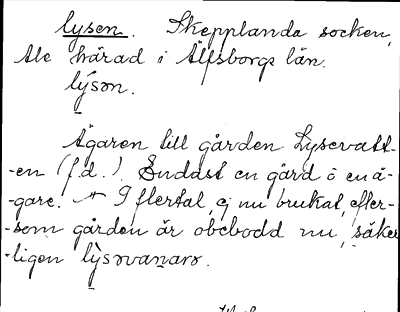 lysen. Skepplanda socken,
Ale härad i Älfsborgs län.
lýsøn.
Ägaren till gården Lysevatt-
-en (f.d.). Endast en gård o en ä-
-gare. I flertal, ej nu brukat, efter-
-som gården är obebodd nu, säker-
-ligen lỳsøvanarø.